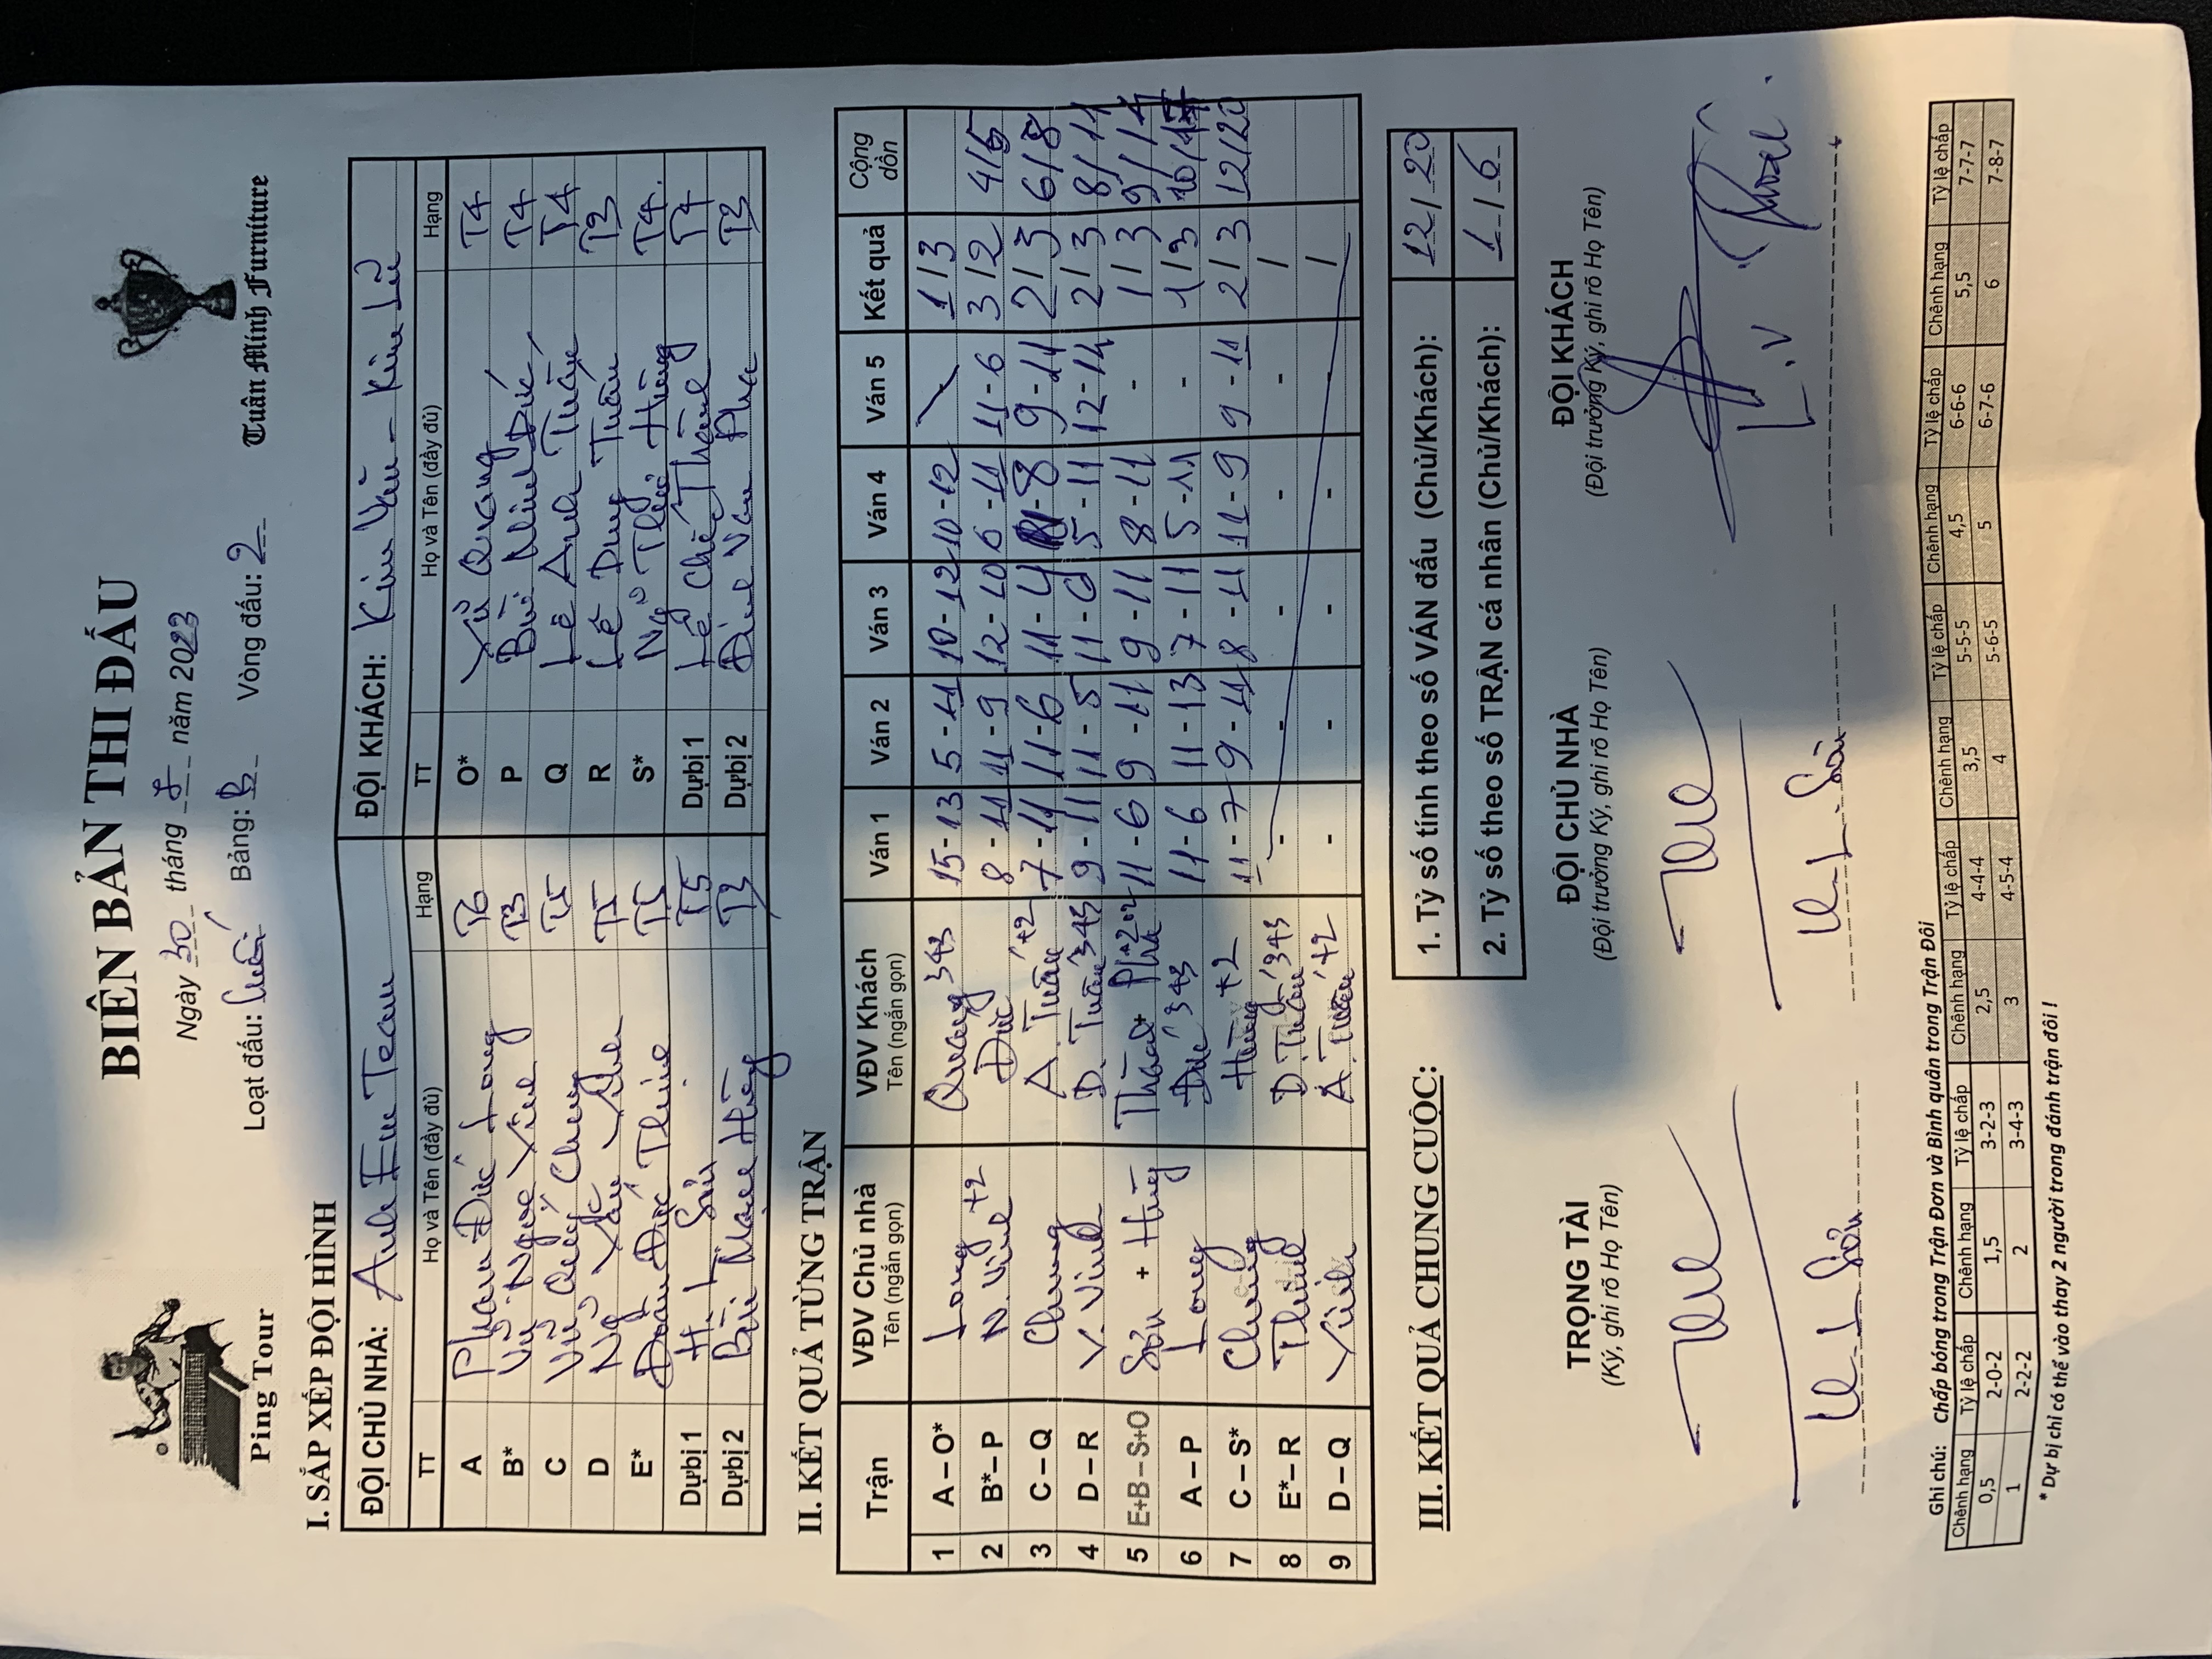 BIÊN BẢN THI ĐẤU
Ping Tour
Ngày 30 tháng năm 2023
Loạt đấu: Bảng: B Vòng đấu: 2
Tuấn Minh Furniture
I. SẮP XẾP ĐỘI HÌNH
ĐỘI CHỦ NHÀ: Anh Em Team ĐỘI KHÁCH:
TT Họ và Tên (đầy đủ) Hạng TT Họ và Tên (đầy đủ) Hạng
A Phan Đức Long T6 O* Quang T4
B* Vũ Ngọc Vinh T3 P Bùi Minh Đức T4
C Vũ Quý Chung T5 Q Lê Anh Tuấn T4
D Ng Xuân Vinh T5 R Lê Dung Tuấn T3
E* Đoàn Đức Thinh T5 S* Ng Thế Hùng T4.
Dự bị 1 H. L Sơn T5 Dự bị 1 Lê Chế Thành T4
Dự bị 2 Bùi Mạnh Hùng T3 Dự bị 2 Đinh Văn Pha T3
II. KẾT QUẢ TỪNG TRẬN
Trận VĐV Chủ nhà VĐV Khách Ván 1 Ván 2 Ván 3 Ván 4 Ván 5 Kết quả Cộng dồn
Tên (ngắn gọn) Tên (ngắn gọn)
1 A – O* Long Quang 343 15-13 5-11 10-12 10-12 1/3
2 B* – P N. Vinh +2 Đức 8-11 11-9 12-10 6-11 11-6 3/2 4/5
3 C – Q Chung A. Tuấn +2 7-11 11-6 11-4 -8 9-11 2/3 6/8
4 D – R X. Vinh D. Tuấn 343 9-11 11-5 11- 5-11 12-14 2/3 8/11
5 E+B – S+O Sơn + Hùng Thành + Pha 11-6 9-11 9-11 8-11 - 1/3 9/14
6 A – P Long Đức 343 11-6 11-13 7-11 5-11 - 1/3 10/17
7 C – S* Chung Hùng +2 11-7 9-11 8-11 11-9 9-11 2/3 12/20
8 E* – R Thinh D. Tuấn 343 - - - - - /
9 D – Q Vinh A. Tuấn +2 - - - - - /
III. KẾT QUẢ CHUNG CUỘC:
1. Tỷ số tính theo số VÁN đấu (Chủ/Khách): 12/20
2. Tỷ số theo số TRẬN cá nhân (Chủ/Khách): 1/6
TRỌNG TÀI ĐỘI CHỦ NHÀ ĐỘI KHÁCH
(Ký, ghi rõ Họ Tên) (Đội trưởng Ký, ghi rõ Họ Tên) (Đội trưởng Ký, ghi rõ Họ Tên)
H. L. Sơn H. L. Sơn L.V
Ghi chú: Chấp bóng trong Trận Đơn và Bình quân trong Trận Đôi
Chênh hạng Tỷ lệ chấp Chênh hạng Tỷ lệ chấp Chênh hạng Tỷ lệ chấp Chênh hạng Tỷ lệ chấp Chênh hạng Tỷ lệ chấp Chênh hạng Tỷ lệ chấp
0,5 2-0-2 1,5 3-2-3 2,5 4-4-4 3,5 5-5-5 4,5 6-6-6 5,5 7-7-7
1 2-2-2 2 3-4-3 3 4-5-4 4 5-6-5 5 6-7-6 6 7-8-7
* Dự bị chỉ có thể vào thay 2 người trong đánh trận đôi !